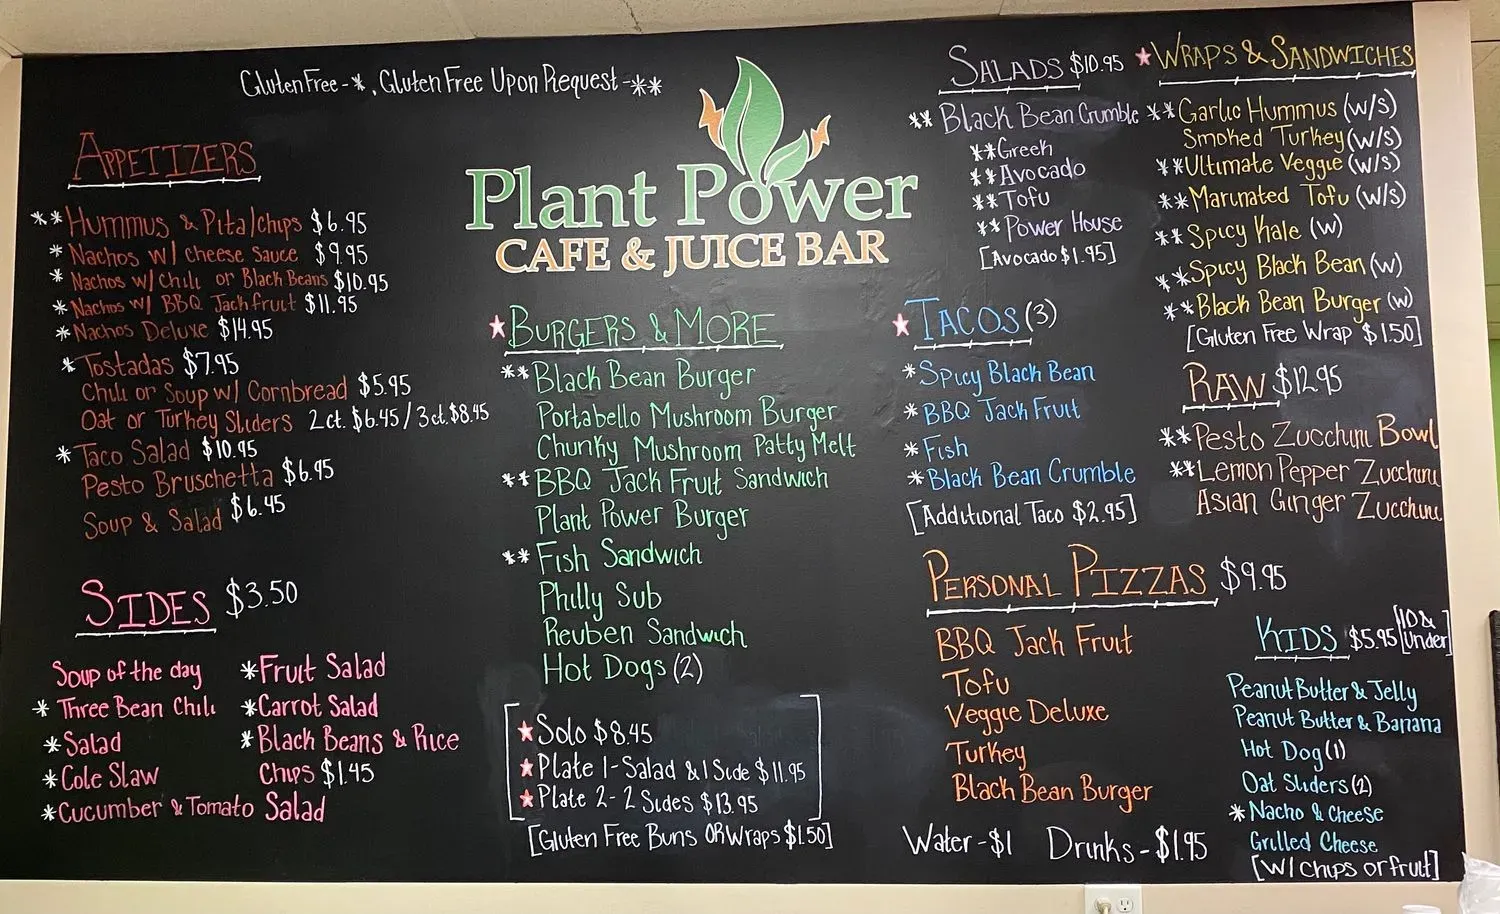 Gluten Free - *, Gluten Free Upon Request - **
Plant Power
CAFE & JUICE BAR
APPETIZERS
** Hummus & Pita/chips $6.95
* Nachos w/ cheese sauce $9.95
* Nachos w/ Chili or Black Beans $10.95
* Nachos w/ BBQ Jackfruit $11.95
* Nachos Deluxe $14.95
* Tostadas $7.95
Chili or Soup w/ Cornbread $5.95
Oat or Turkey Sliders 2ct. $6.45 / 3ct. $8.45
* Taco Salad $10.95
Pesto Bruschetta $6.95
Soup & Salad $6.45
SIDES $3.50
Soup of the day
* Three Bean Chili
* Salad
* Cole Slaw
* Cucumber & Tomato Salad
* Fruit Salad
* Carrot Salad
* Black Beans & Rice
Chips $1.45
★ BURGERS & MORE
** Black Bean Burger
Portabello Mushroom Burger
Chunky Mushroom Patty Melt
** BBQ Jack Fruit Sandwich
Plant Power Burger
** Fish Sandwich
Philly Sub
Reuben Sandwich
Hot Dogs (2)
★ Solo $8.45
★ Plate 1 - Salad & 1 Side $11.95
★ Plate 2 - 2 Sides $13.95
[Gluten Free Buns OR Wraps $1.50]
SALADS $10.95
** Black Bean Crumble
** Greek
** Avocado
** Tofu
** Power House
[Avocado $1.95]
★ TACOS (3)
* Spicy Black Bean
* BBQ Jack Fruit
* Fish
* Black Bean Crumble
[Additional Taco $2.95]
★ WRAPS & SANDWICHES
** Garlic Hummus (w/s)
Smoked Turkey (w/s)
** Ultimate Veggie (w/s)
** Marinated Tofu (w/s)
** Spicy Kale (w)
** Spicy Black Bean (w)
** Black Bean Burger (w)
[Gluten Free Wrap $1.50]
RAW $12.95
** Pesto Zucchini Bowl
** Lemon Pepper Zucchini
Asian Ginger Zucchini
PERSONAL PIZZAS $9.95
BBQ Jack Fruit
Tofu
Veggie Deluxe
Turkey
Black Bean Burger
KIDS $5.95 [10 & Under]
Peanut Butter & Jelly
Peanut Butter & Banana
Hot Dog (1)
Oat Sliders (2)
* Nacho & Cheese
Grilled Cheese
[w/ chips or fruit]
Water - $1 Drinks - $1.95